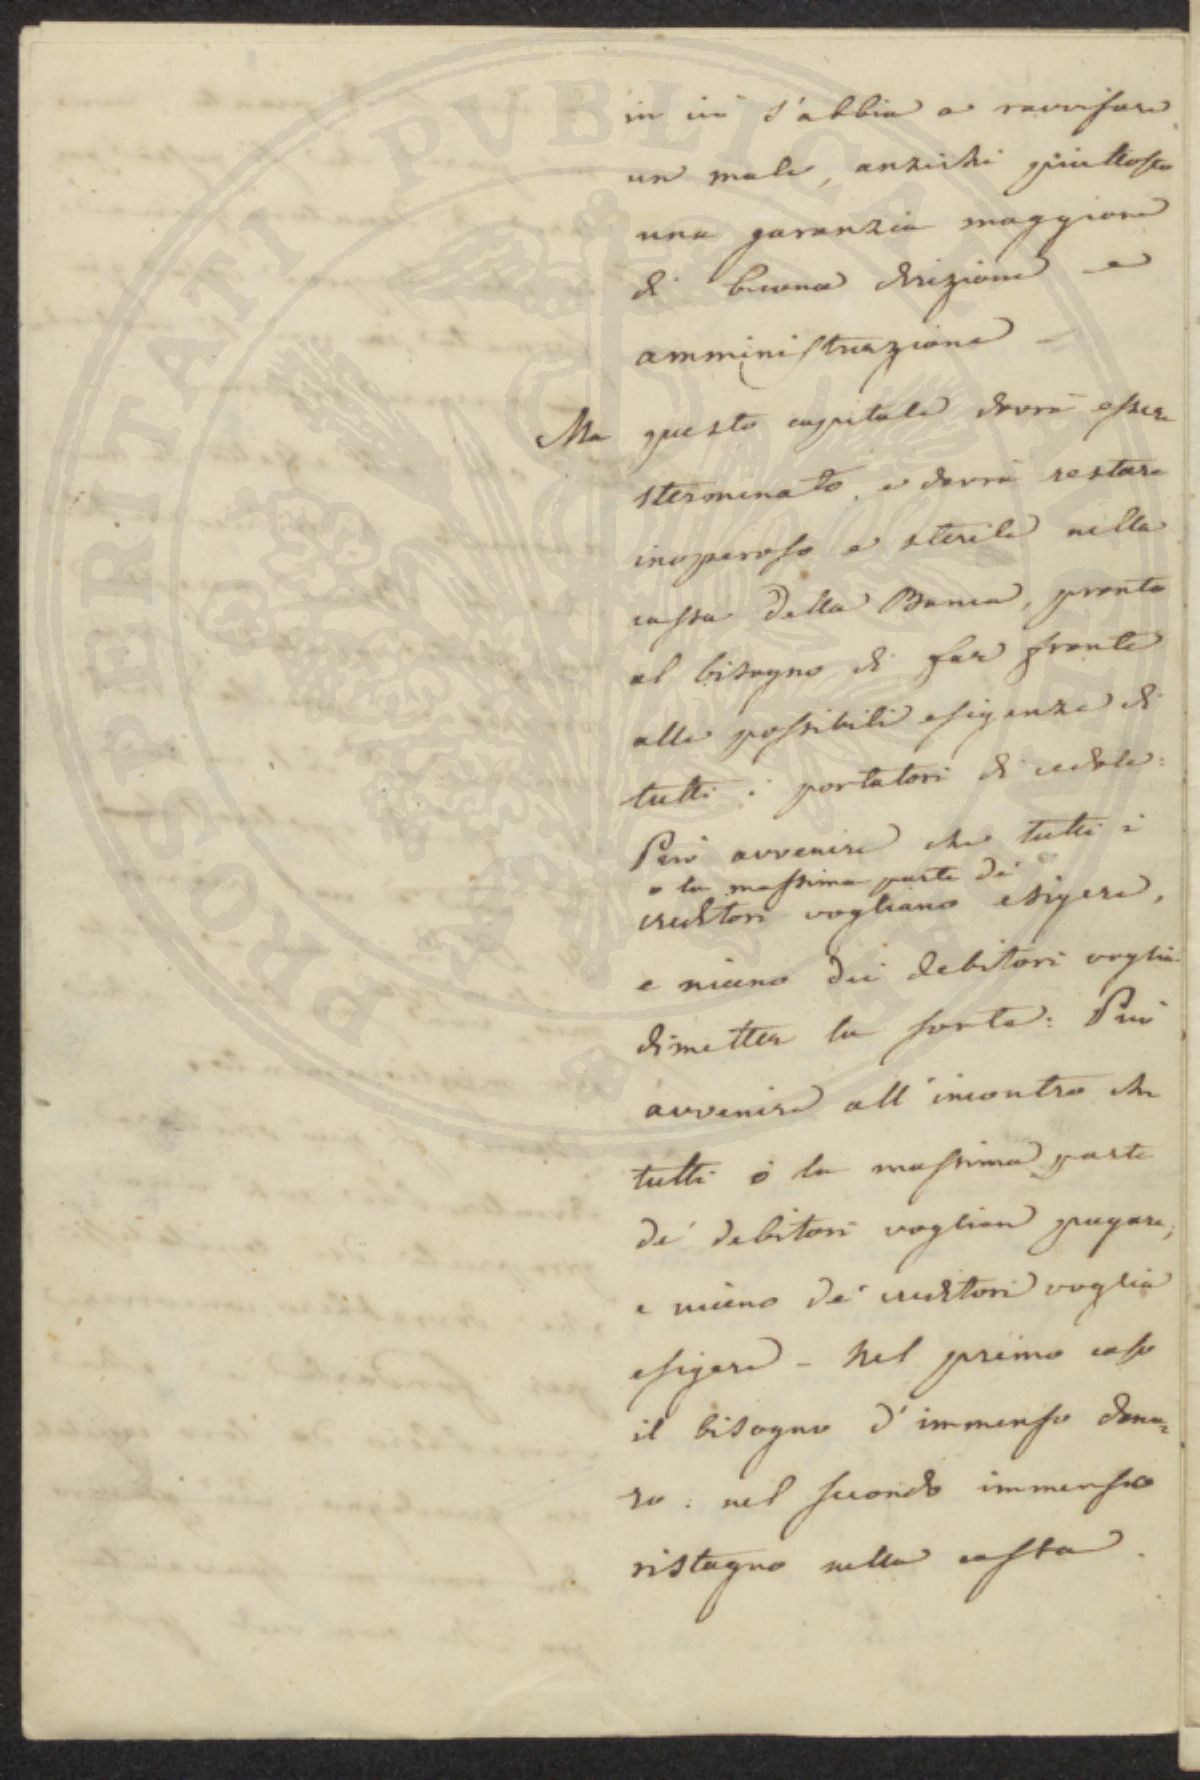 in ciò s'abbia a ravvisare
un male, anzichè piuttosto
una garanzia maggiore
di buona direzione e
amministrazione -
Ma questo capitale dovrà esser
sterminato, e dovrà restare
inoperoso e sterile nella
cassa della Banca, pronto
al bisogno di far fronte
alle possibili esigenze di
tutti i portatori di cedole:
Può avvenire che tutti i
o la massima parte dei
creditori vogliano esigere,
e niuno dei debitori voglia
dimetter la sorte: Può
avvenire all'incontro che
tutti o la massima parte
de' debitori voglian pagare,
e niuno de' creditori voglia
esigere - Nel primo caso
il bisogno d'immenso dana=
ro: nel secondo immenso
ristagno nella cassa.
PROSPERITATI PVBLICAE